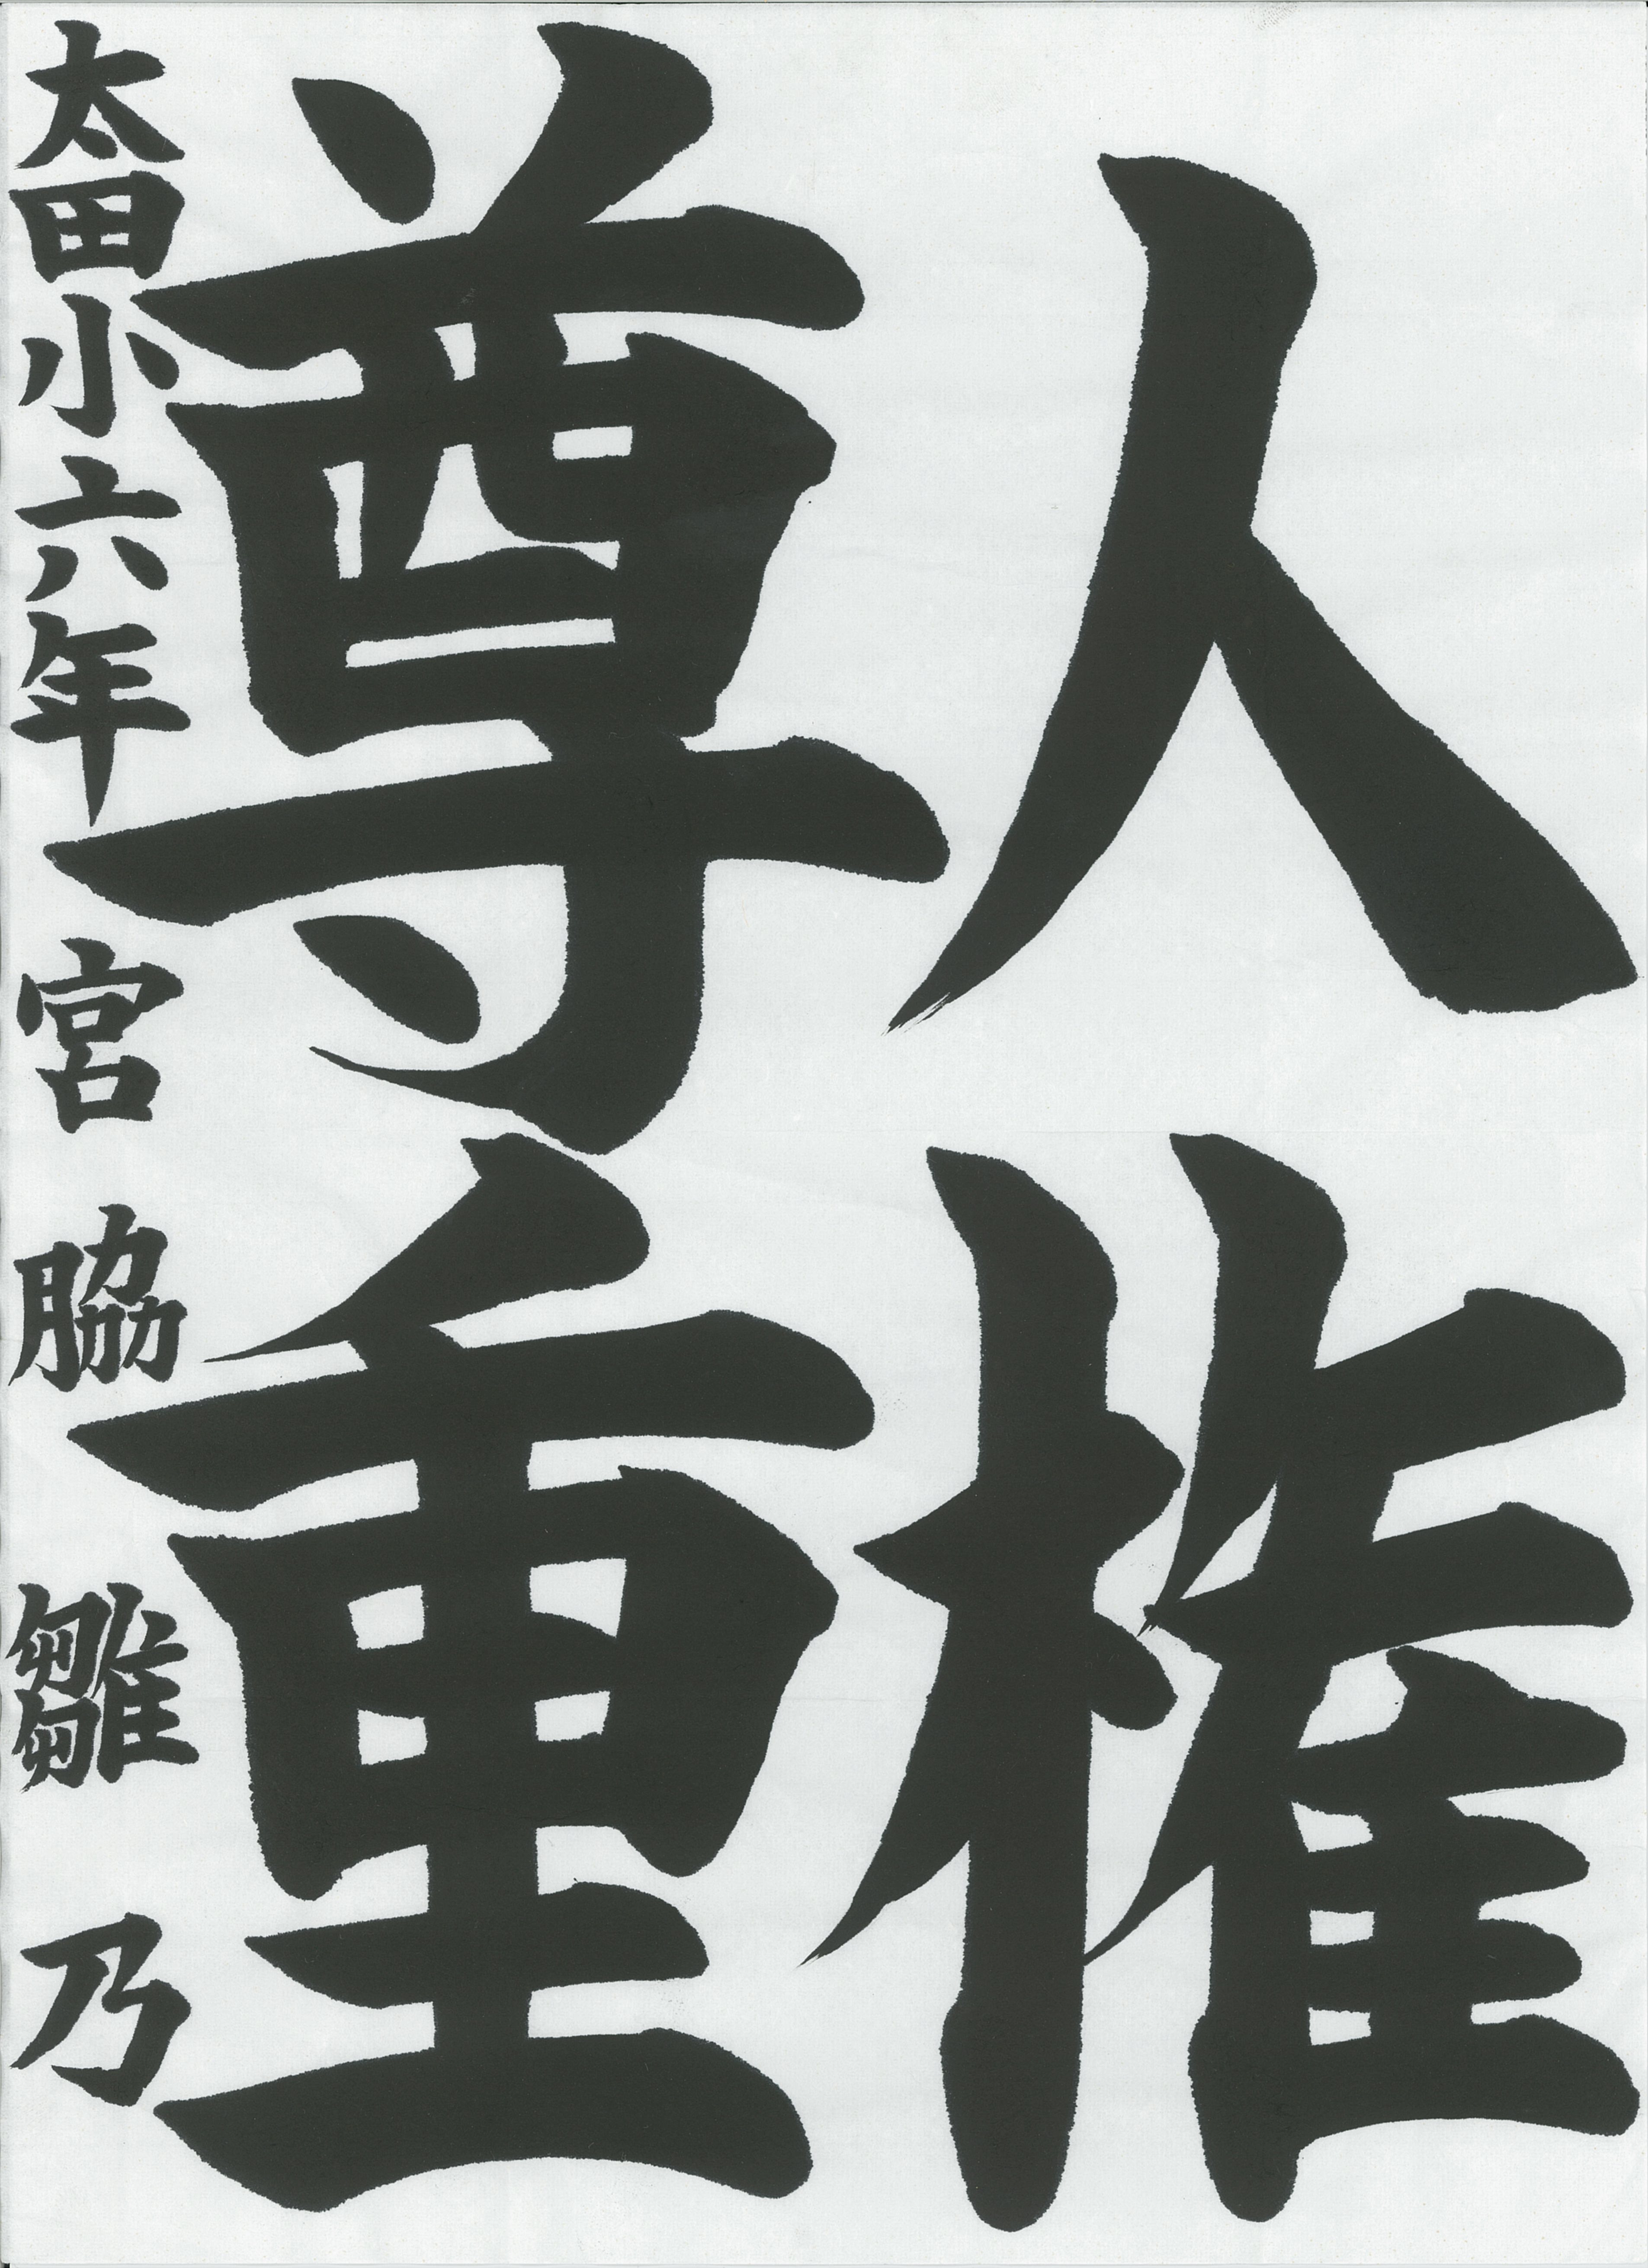 人権
尊重
太田小六年 宮脇雛乃